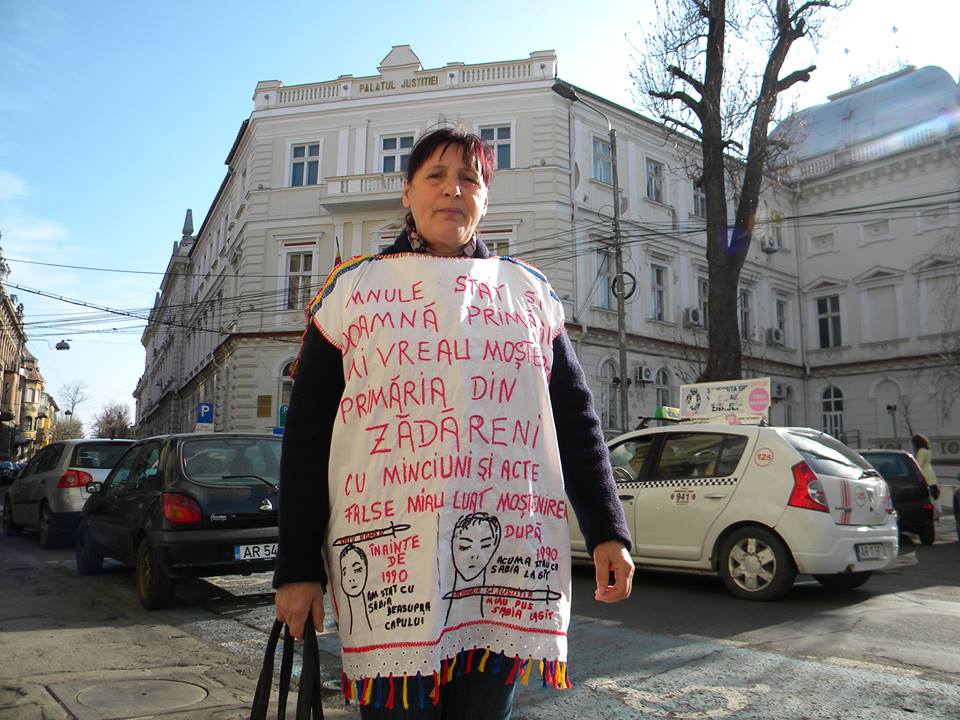 PALATUL JUSTIȚIEI
MNULE STAT ȘI
DOAMNĂ PRIMĂ
AI VREAU MOȘTE
PRIMĂRIA DIN
ZĂDĂRENI
CU MINCIUNI ȘI ACTE
FALSE MIAU LUAT MOȘTENIREA
ÎNAINTE
DE
1990
AM STAT CU
SABIA
DEASUPRA
CAPULUI
DUPĂ
1990
ACUMA STAU CU
SABIA LA GÎT
MIAU PUS
SABIA LAGÎT
P
AR 54
125
941